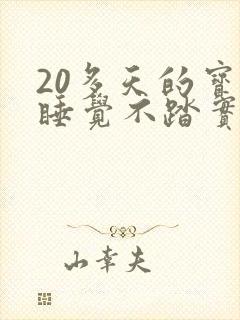 20多天的寳
睡覺不踏實
山幸夫